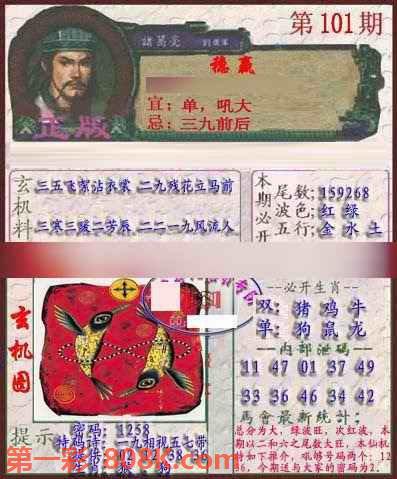 第101期
諸葛亮
稳赢
宜：单，吼大
忌：三九前后
正版
玄机料
三五飞絮沾衣裳 二九残花立马前
三寒三暖二芳辰 二二一九风流人
本期必开
尾数：159268
波色：红 绿
五行：金 水 土
玄机图
必开生肖
双：猪 鸡 牛
单：狗 鼠 龙
内部泄码
11 47 01 37 49
33 36 46 34 42
馬會最新統计：
总分为大，绿波旺，次红波，本
期以二和六之尾数大旺，本仙机
提示
密码：1258
特码诗：一九相视五七带
第一彩：808K.com